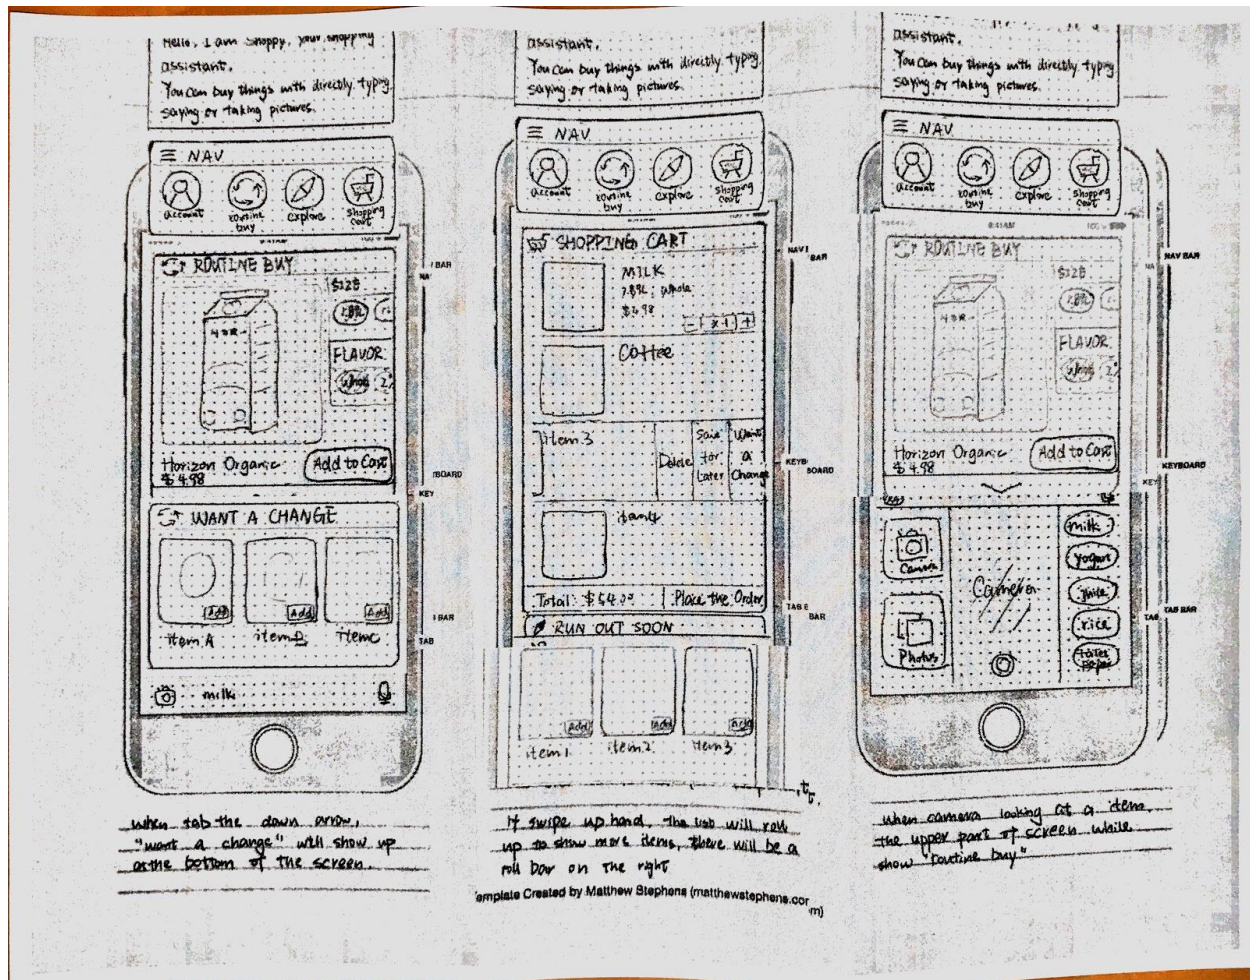 Hello, I am Shoppy, your shopping
assistant.
You can buy things with directly typing
saying or taking pictures.
NAV
account
routine
buy
explore
shopping
cart
9:41AM
100
ROUTINE BUY
SIZE
1.89L
FLAVOR
Whole 2%
Horizon Organic
$ 4.98
Add to Cart
WANT A CHANGE
Add
Add
Add
item A
item B
item C
milk
BAR
NA
BOARD
KEY
BAR
TAB
when tab the down arrow,
"want a change" will show up
at the bottom of the screen.
assistant.
You can buy things with directly typing
saying or taking pictures.
NAV
account
routine
buy
explore
shopping
cart
SHOPPING CART
MILK
1.89L; whole
$4.98
- x1 +
Coffee
item 3
Delete
Save
for
Later
Want
a
Change
item4
Total: $54.00
Place the Order
RUN OUT SOON
Add
Add
Add
item1
item2
item3
NAV
BAR
KEYB
BOARD
TAB B
BAR
If swipe up hand, the list will roll
up to show more items, there will be a
roll bar on the right
Template Created by Matthew Stephens (matthewstephens.com)
assistant.
You can buy things with directly typing
saying or taking pictures.
NAV
account
routine
buy
explore
shopping
cart
9:41AM
100
ROUTINE BUY
SIZE
1.89L
FLAVOR
Whole 2%
Horizon Organic
$ 4.98
Add to Cart
Camera
Photos
Camera
milk
yogurt
rice
toilet
paper
NA
NAV BAR
KEY
KEYBOARD
TAB
TAB BAR
when camera looking at a item,
the upper part of screen while
show "routine buy"